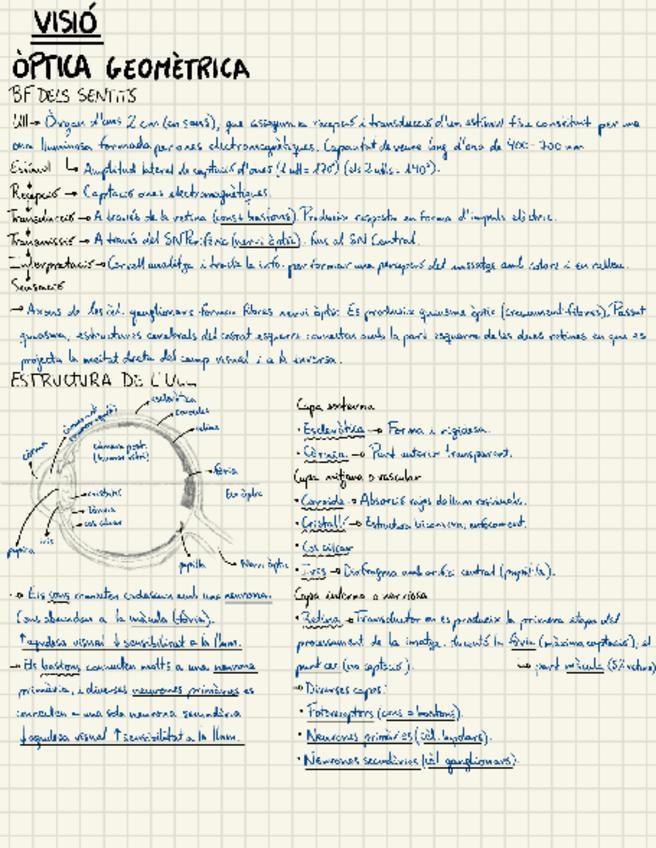 VISIÓ
ÒPTICA GEOMÈTRICA
BF DELS SENTITS
Ull → Òrgan d'uns 2 cm (en sans), que assegura recepció i transducció d'un estímul físic constituït per una
ona lluminosa formada per ones electromagnètiques. Capacitat de veure long d'ona de 400-700 nm
Estímul ↳ Amplitud lateral de captació d'ones (1 ull = 170°) (els 2 ulls = 140°).
Recepció → Captació ones electromagnètiques.
Transducció → A través de la retina (cons i bastons). Produeix resposta en forma d'impuls elèctric.
Transmissió → A través del SN Perifèric (nervi òptic), fins al SN Central.
Interpretació → Cervell analitza i tracta la info. per formar una percepció del missatge amb colors i en relleu.
Sensació
→ Axons de les cèl. ganglionars formen fibres nervi òptic. Es produeix quiasma òptic (creuament fibres). Passat
quiasma, estructures cerebrals del costat esquerre connecten amb la part esquerra de les dues retines en que es
projecta la meitat dreta del camp visual i a la inversa.
ESTRUCTURA DE L'ULL
escleròtica
coroides
retina
còrnia
càmara post.
(humor vitri)
fòvia
Eix òptic
cristal·lí
cos ciliar
pupil·la
iris
papil·la
Nervi òptic
Capa externa
· Escleròtica → Forma i rigidesa.
· Còrnia → Punt anterior transparent.
Capa mitjana o vascular
· Coroide → Absorció rajos de llum residuals.
· Cristal·lí → Estructura biconvexa, enfocament.
· Cos ciliar
· Iris → Diafragma amb orifici central (pupil·la).
Capa interna o nerviosa
· Retina → Transductor on es produeix la primera etapa del
processament de la imatge. Inclou la fòvia (màxima captació), el
punt cec (no captació). ↳ part màcula (5% retina)
→ Diverses capes:
· Fotoreceptors (cons o bastons).
· Neurones primàries (cèl. bipolars).
· Neurones secundàries (cèl ganglionars).
→ Els cons connecten cadascun amb una neurona.
Cons abunden a la màcula (fòvia).
↑ agudesa visual ↓ sensibilitat a la llum.
→ Els bastons connecten molts a una neurona
primària, i diverses neurones primàries es
connecten a una sola neurona secundària
↓ agudesa visual ↑ sensibilitat a la llum.